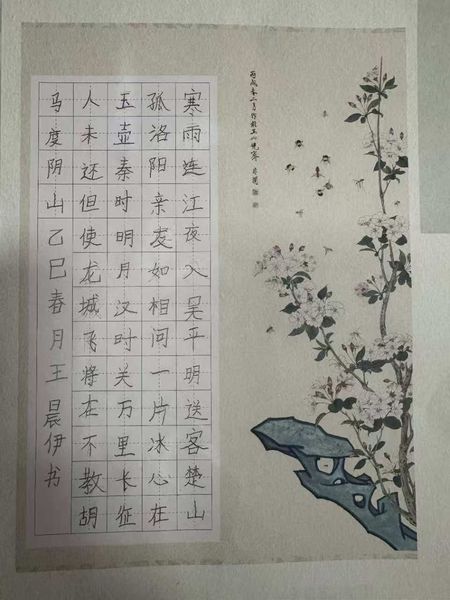 寒雨连江夜入吴平明送客楚山
孤洛阳亲友如相问一片冰心在
玉壶秦时明月汉时关万里长征
人未还但使龙城飞将在不教胡
马度阴山乙巳春月王晨伊书